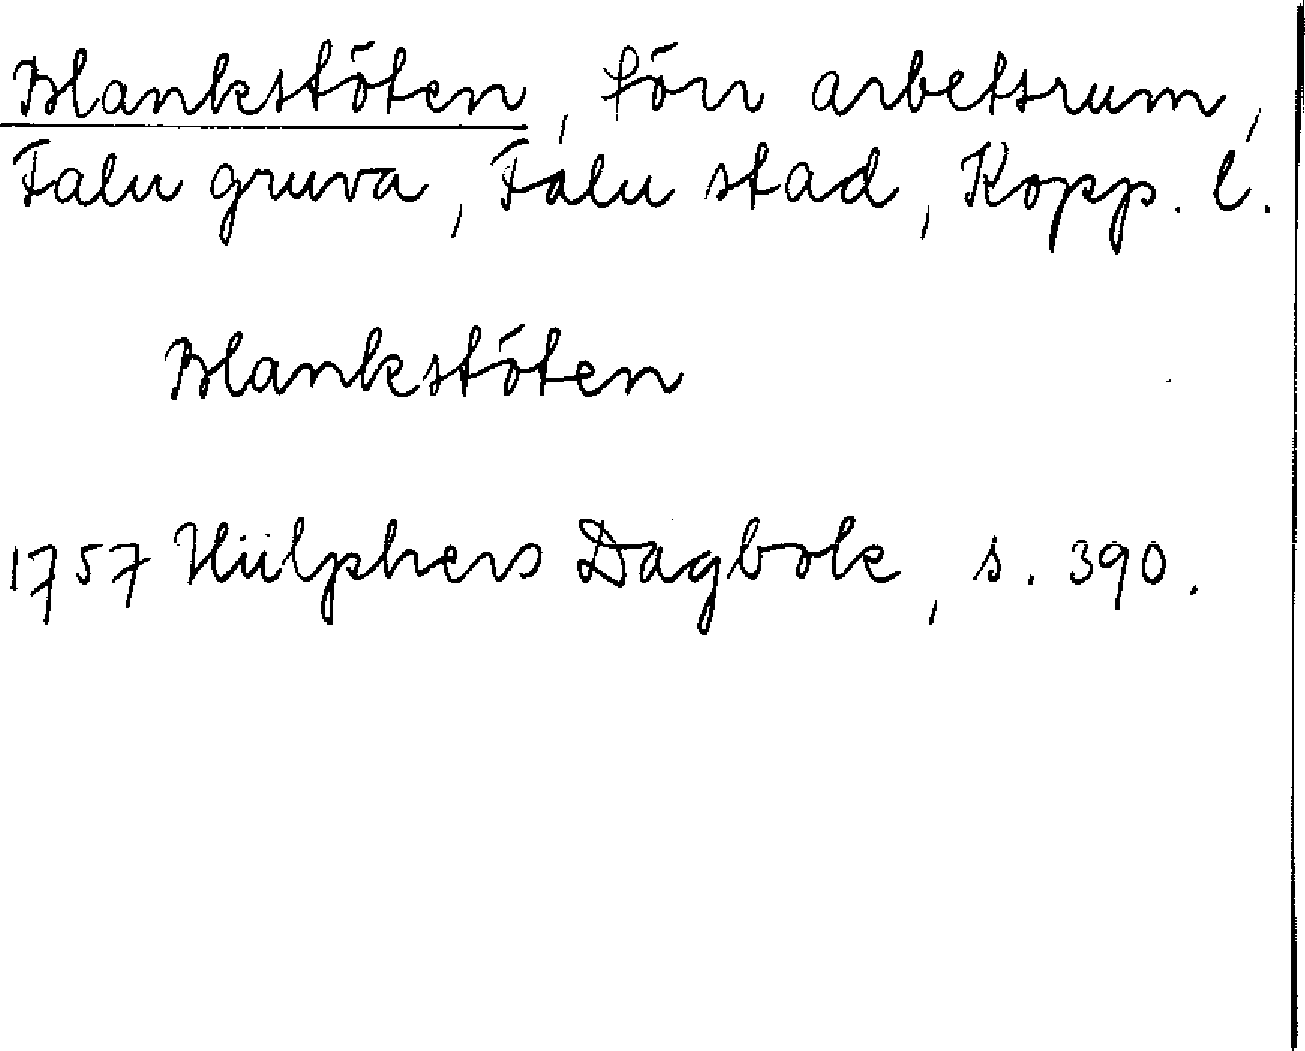 Blankstöten, förr arbetsrum,
Falu gruva, Falu stad, Kopp. l.
Blankstöten
1757 Hülphers Dagbok, s. 390.